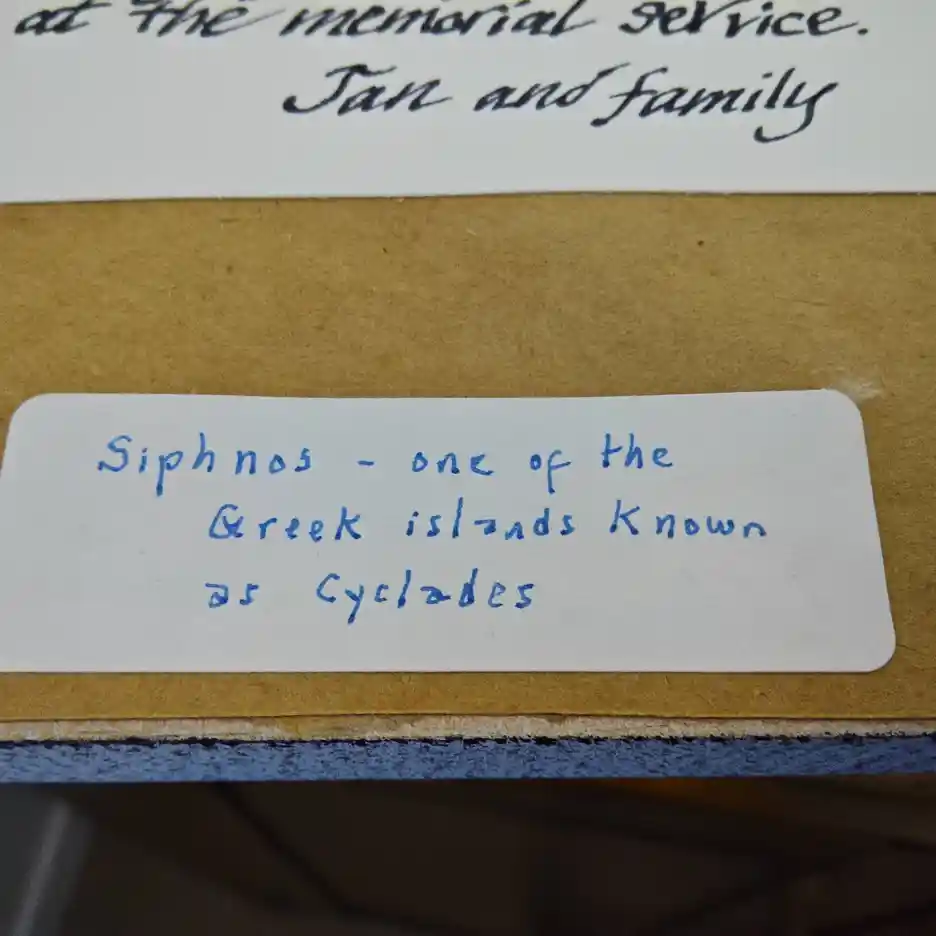 at the memorial service.
Jan and family
Siphnos - one of the
Greek islands known
as Cyclades